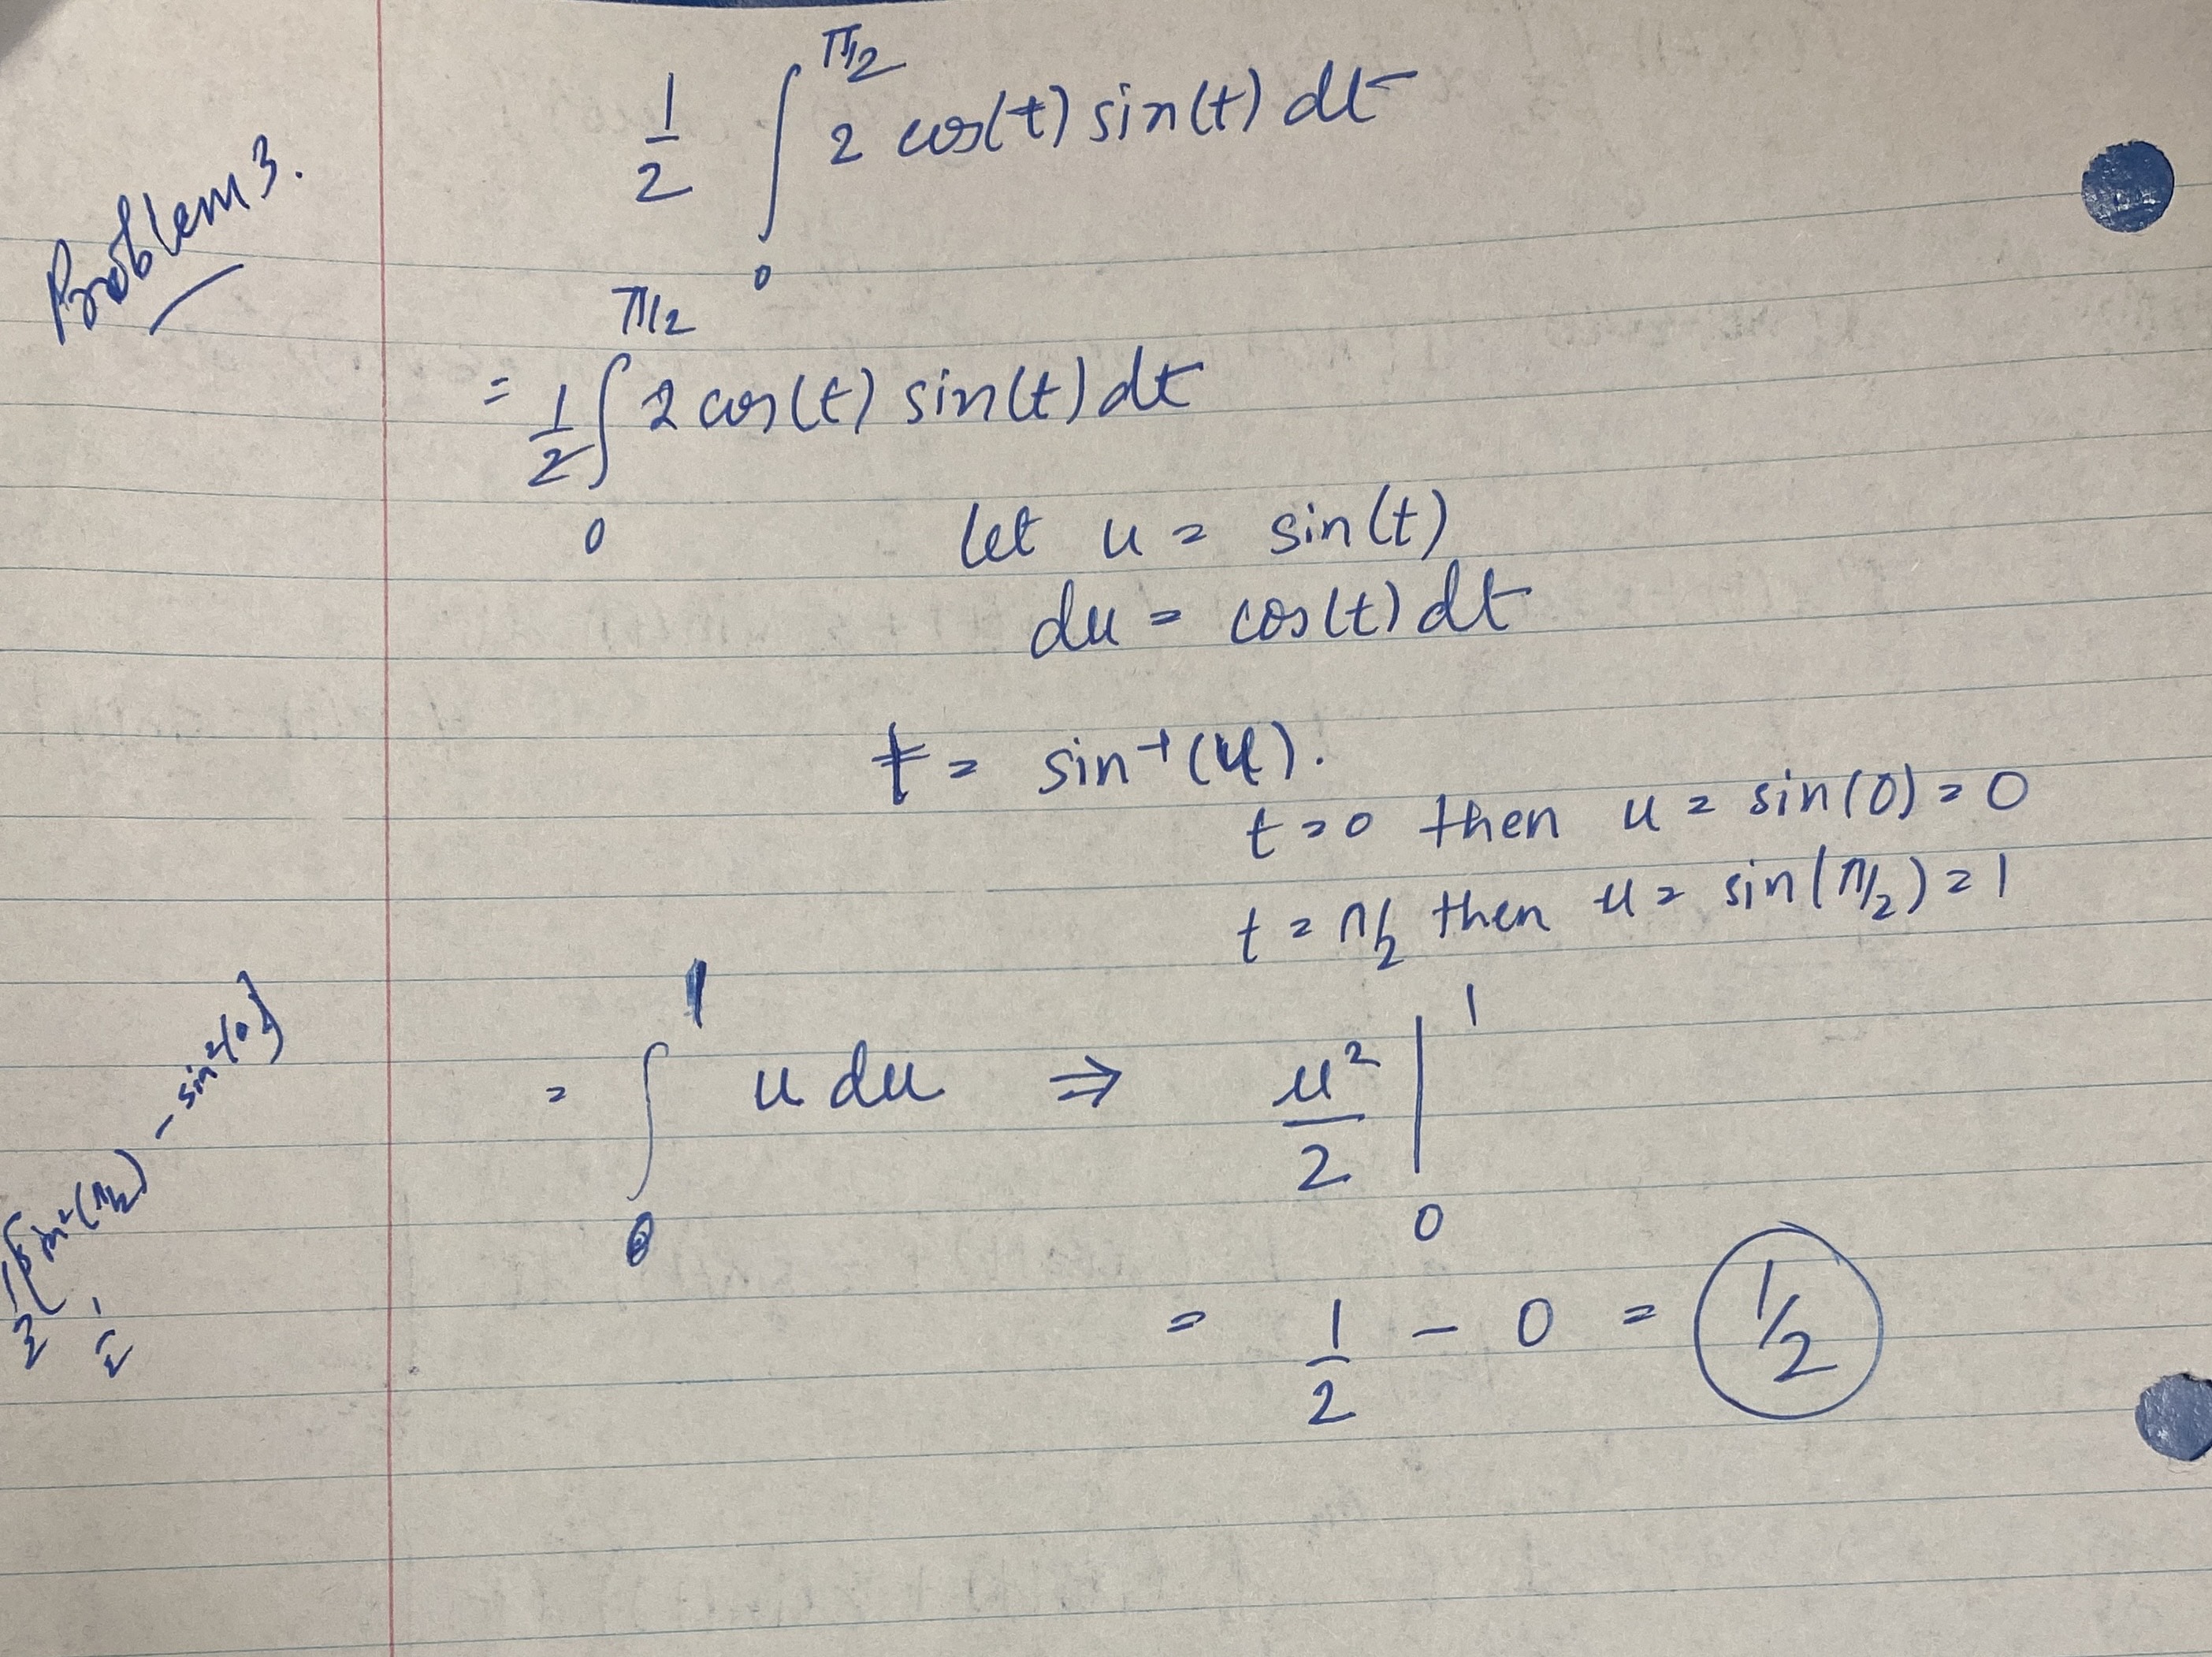 Problem 3.
1/2 ∫₀^{π/2} 2 cos(t) sin(t) dt
= 1/2 ∫₀^{π/2} 2 cos(t) sin(t) dt
let u = sin(t)
du = cos(t) dt
t = sin⁻¹(u).
t = 0 then u = sin(0) = 0
t = π/2 then u = sin(π/2) = 1
= ∫₀¹ u du ⇒ u²/2 |₀¹
= 1/2 - 0 = 1/2
1/2 [sin²(π/2) - sin²(0)]
1/2